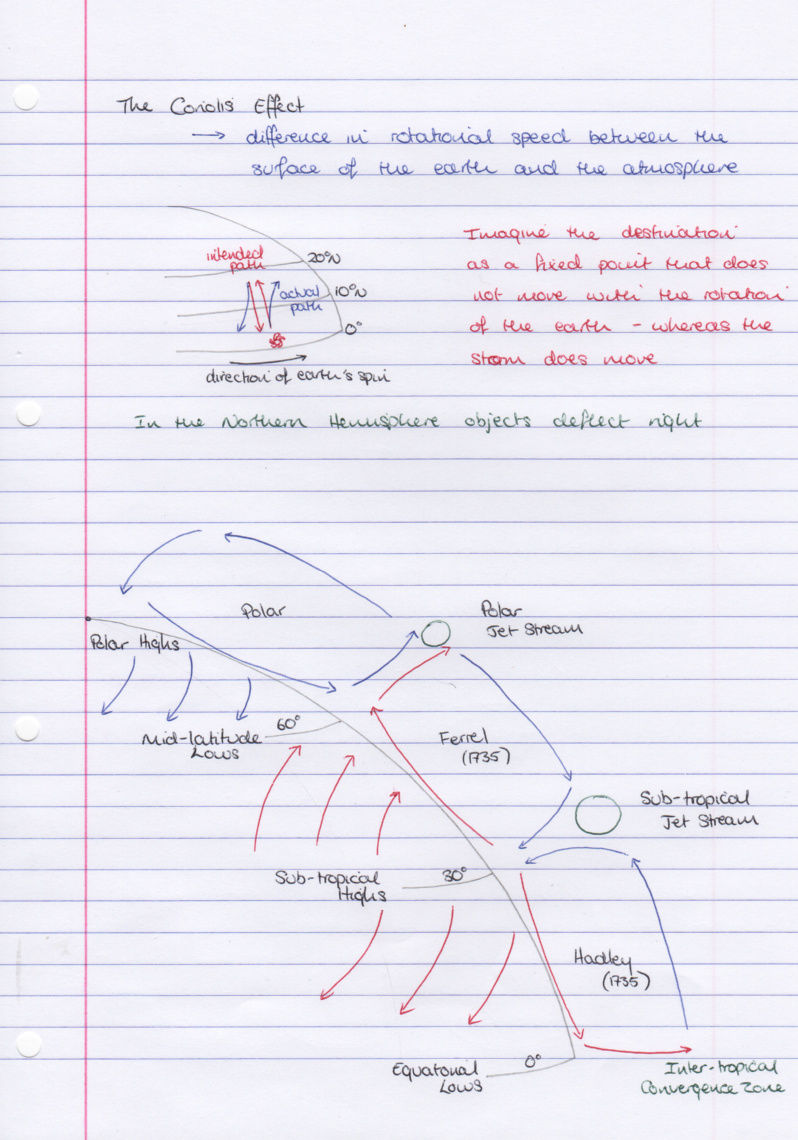 The Coriolis Effect
→ difference in rotational speed between the
surface of the earth and the atmosphere
intended
path
20°N
actual
path
10°N
0°
direction of earth's spin
Imagine the destination
as a fixed point that does
not move with the rotation
of the earth - whereas the
storm does move
In the Northern Hemisphere objects deflect right
Polar
Polar
Jet Stream
Polar Highs
60°
Mid-latitude
Lows
Ferrel
(1735)
Sub-tropical
Jet Stream
Sub-tropical
Highs
30°
Hadley
(1735)
Equatorial
Lows
0°
Inter-tropical
Convergence Zone